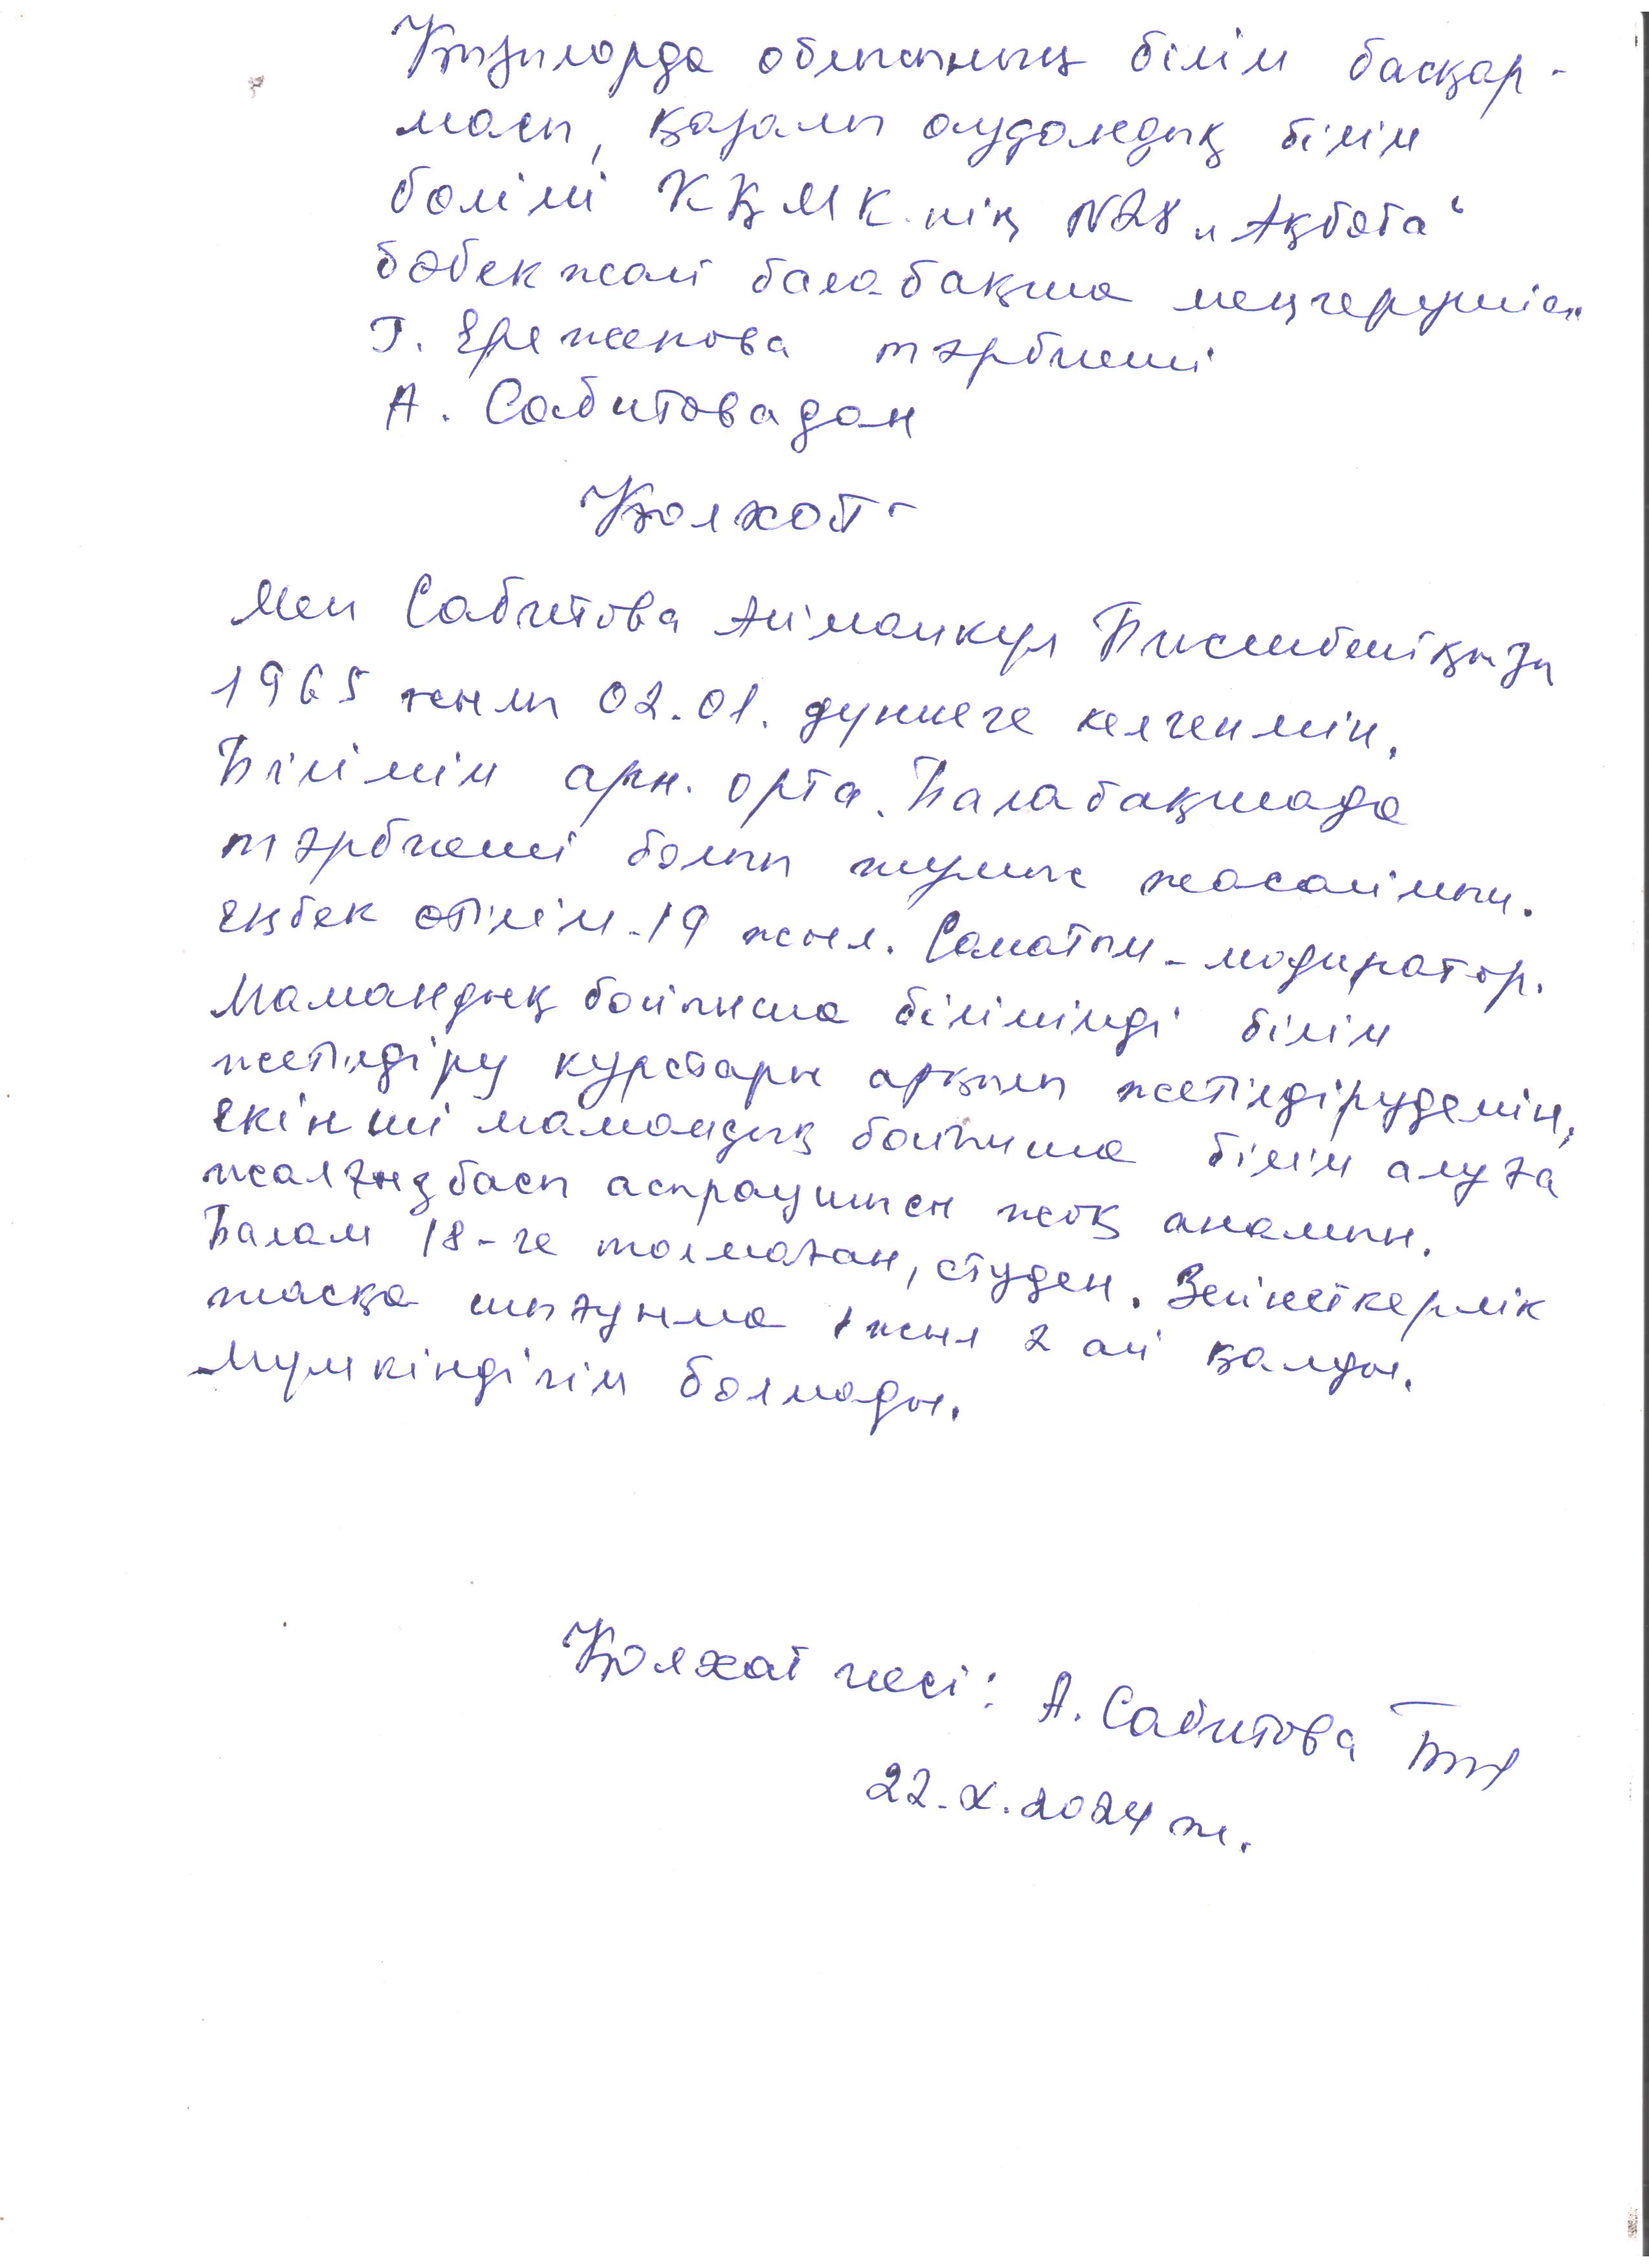 Қызылорда облысының білім басқар-
масы, қазалы аудандық білім
бөлімі КҚМК.нің №28 „Ақбота“
бөбекжай балабақша меңгерушісі
Г. Ережепова тәрбиеші
А. Сабитовадан
Қолхат
Мен Сабитова Бисенбайқызы
1965 жылы 02.01. дүниеге келгенмін.
Білімім арн. орта. Балабақшада
тәрбиеші болып жұмыс жасаймын.
Еңбек өтілім-19 жыл. Санатым-модиратор.
Мамандық бойынша білімімді білім
жетілдіру курстары арқылы жетілдірудемін,
екінші мамандық бойынша білім алуға
жалғызбасы асыраушысы жоқ анамын.
Балам 18-ге толмаған, студен. Зейнеткерлік
жасқа шығуыма 1 жыл 2 ай қалды.
Мүмкіндігім болмады.
Қолхат иесі: А. Сабитова
22.X.2024 ж.